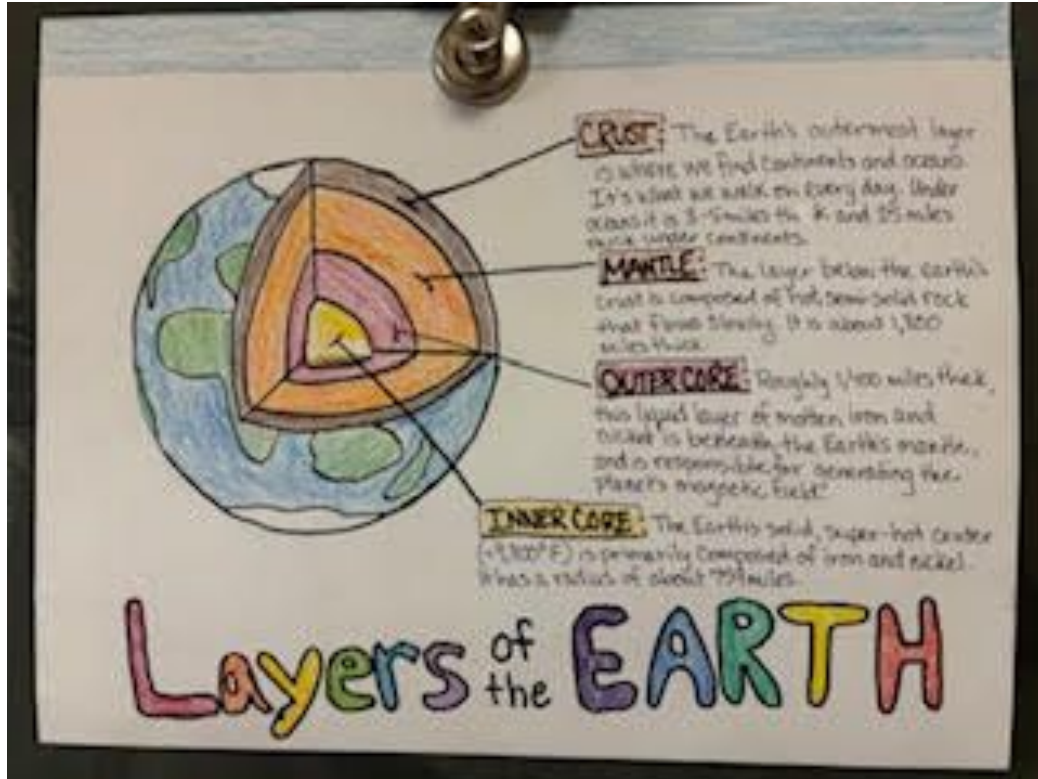 CRUST: The Earth's outermost layer
is where we find continents and oceans.
It's what we walk on every day. Under
oceans it is 3-5 miles and 25 miles
thick under continents.
MANTLE: The layer below the earth's
crust is composed of hot, semi-solid rock
that flows slowly. It is about 1,800
miles thick
OUTER CORE: Roughly 1,400 miles thick,
this liquid layer of molten iron and
nickel is beneath the Earth's mantle,
and is responsible for generating the
planet's magnetic field.
INNER CORE: The Earth's solid, super-hot center
is primarily composed of iron and nickel.
It has a radius of about miles.
Layers of the EARTH